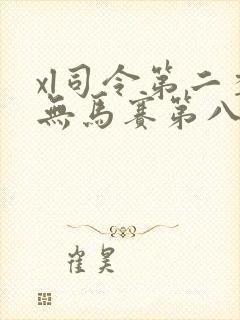 xl司令第二季
無馬賽第八
崔昊